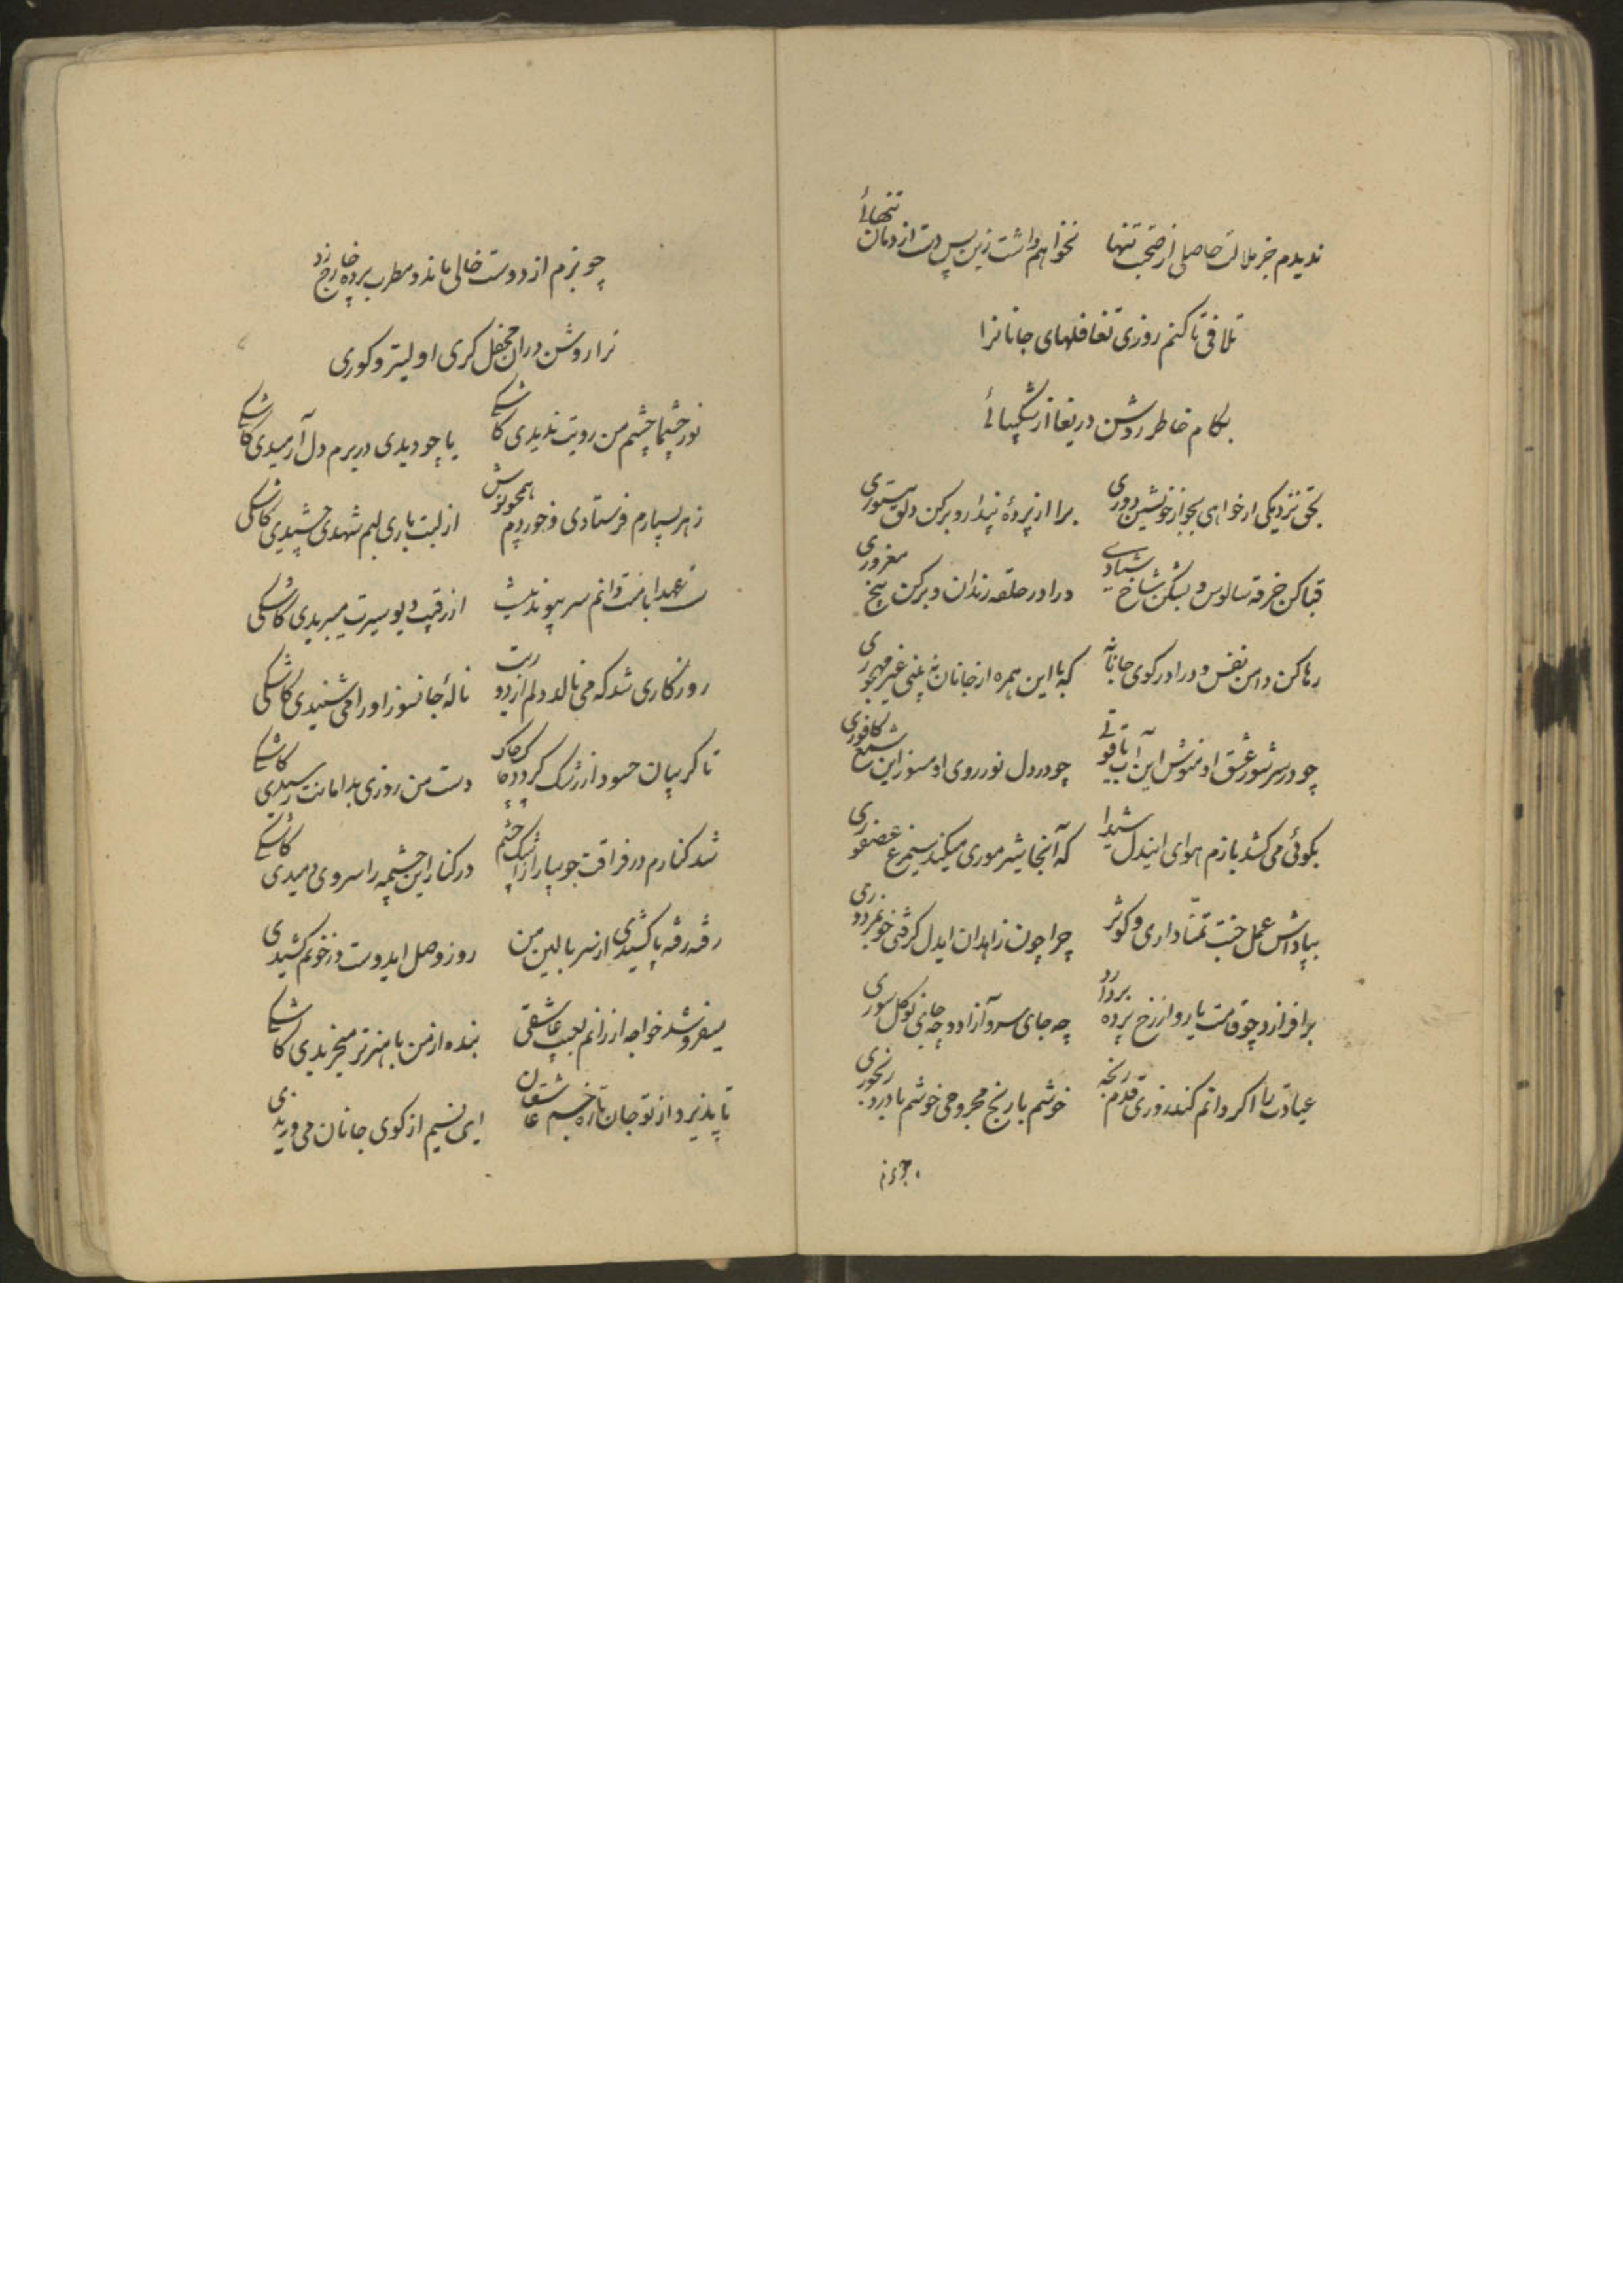 ندیدم جز ملالت حاصلی از صحبت تنها نخواهم داشت زین پس دست از دامان تنهائی
تلافی تا کنم روزی تغافلهای جانانرا
بکام خاطر روشن دریغا از شکیبائی
بحق نزدیکی ار خواهی بجو از خویشتن دوری برا از پردهٔ پندار و برکن دلق مستوری
قبا کن خرقه سالوس و بشکن شاخ شیادی درا در حلقه رندان و برکن بیخ مغروری
رها کن دامن نفس و درا در کوی جانانه که با این همره از جانان نه بینی غیر مهجوری
چو در سر شور عشق او منوش این آب یاقوتی چو در دل نور روی او مسوز این شمع کافوری
بکوئی می کشد بازم هوای ایندل شیدا که آنجا شیر موری میکند سیمرغ عصفوری
بپاداش عمل جنت تمنا داری و کوثر چرا چون زاهدان ایدل گرفتی خو بمزدوری
برافرازد چو قامت یار و از رخ پرده بردارد چه جای سرو آزاد و چه جای نو گل سوری
عیادت را اگر دانم کند روزی قدم رنجه خوشم با رنج مجروحی خوشم با درد رنجوری
چو بزم
چو بزم از دوست خالی ماند و مطرب پرده خارج زد
ترا روشن دران محفل کری اولیتر و کوری
نور چشما چشم من رویت ندیدی کاشکی یا چو دیدی در برم دل آرمیدی کاشکی
زهر بسیارم فرستادی و خوردم همچو نوش از لبت باری لبم شهدی چشیدی کاشکی
از رقیب دیو سیرت میبریدی کاشکی
روزگاری شد که می نالد دلم از درد نالهٔ جانسوز او را می شنیدی کاشکی
تا گریبان حسود از رشک گردد چاک چاک دست من روزی بدامانت رسیدی کاشکی
شد کنارم در فراقت جویبار از اشک چشم در کنار این چشمه را سروی دمیدی کاشکی
رفته رفته پا کشیدی از سر بالین من روز وصل ایدوست در خونم کشیدی
میفروشد خواجه ارزانم بعیب عاشقی بنده از من با هنرتر میخریدی کاشکی
تا پذیرد از تو جان تازه جسم عاشقان ای نسیم از کوی جانان می وزیدی